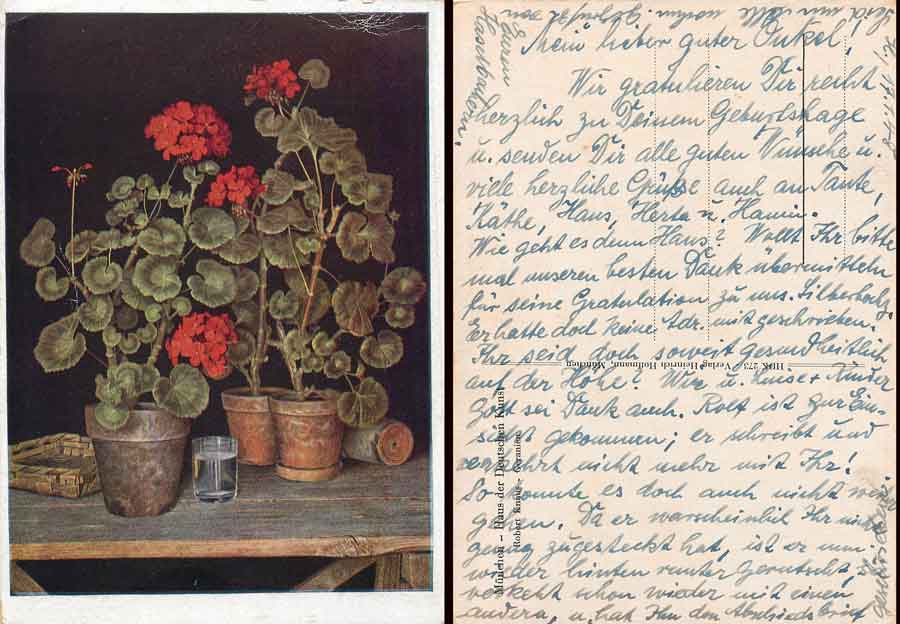 Mein lieber guter Onkel,
Wir gratulieren Dir recht
herzlich zu Deinem Geburtstage
u. senden Dir alle guten Wünsche u.
viele herzliche Grüsse auch an Tante,
Käthe, Hans, Herta u.
Wie geht es denn Hans? Wollt Ihr bitte
mal unseren besten Dank übermitteln
für seine Gratulation zu uns. Silberhochz.
Er hatte doch keine Adr. mitgeschrieben.
Ihr seid doch soweit gesundheitlich
auf der Höhe? Wir u. unsere Kinder
Gott sei Dank auch. Rolf ist zur Ein-
gekommen; er schreibt und
nicht mehr mit Ihr!
So konnte es doch auch nicht weiter
gehen. Da er warscheinlich Ihr nicht
genug zugesteckt hat, ist er nun
wieder hinten runter gerutscht,
verkehrt schon wieder mit einen
andern, u. hat Ihm den Abschiedsbrief
geschrieben
München – Haus der Deutschen Kunst
Robert Knaus – Geranien
HDK 273 / Verlag Heinrich Hoffmann, München